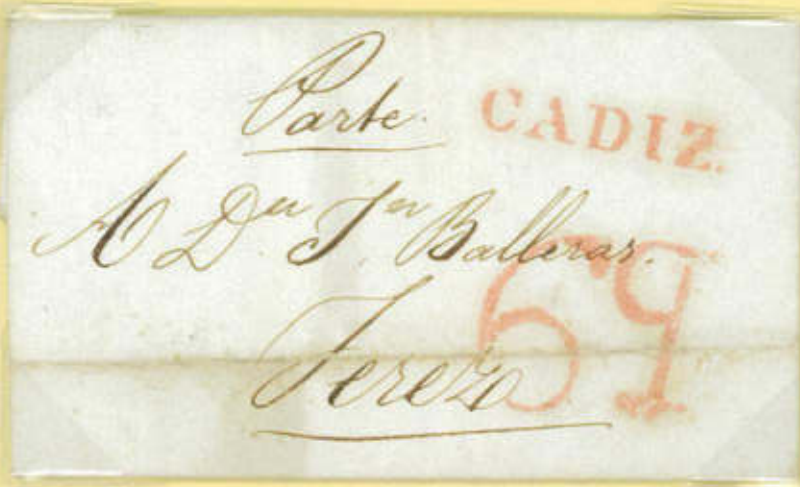 Parte.
CADIZ.
A Dⁿ Jⁿ Balleras.
6q
Jerez